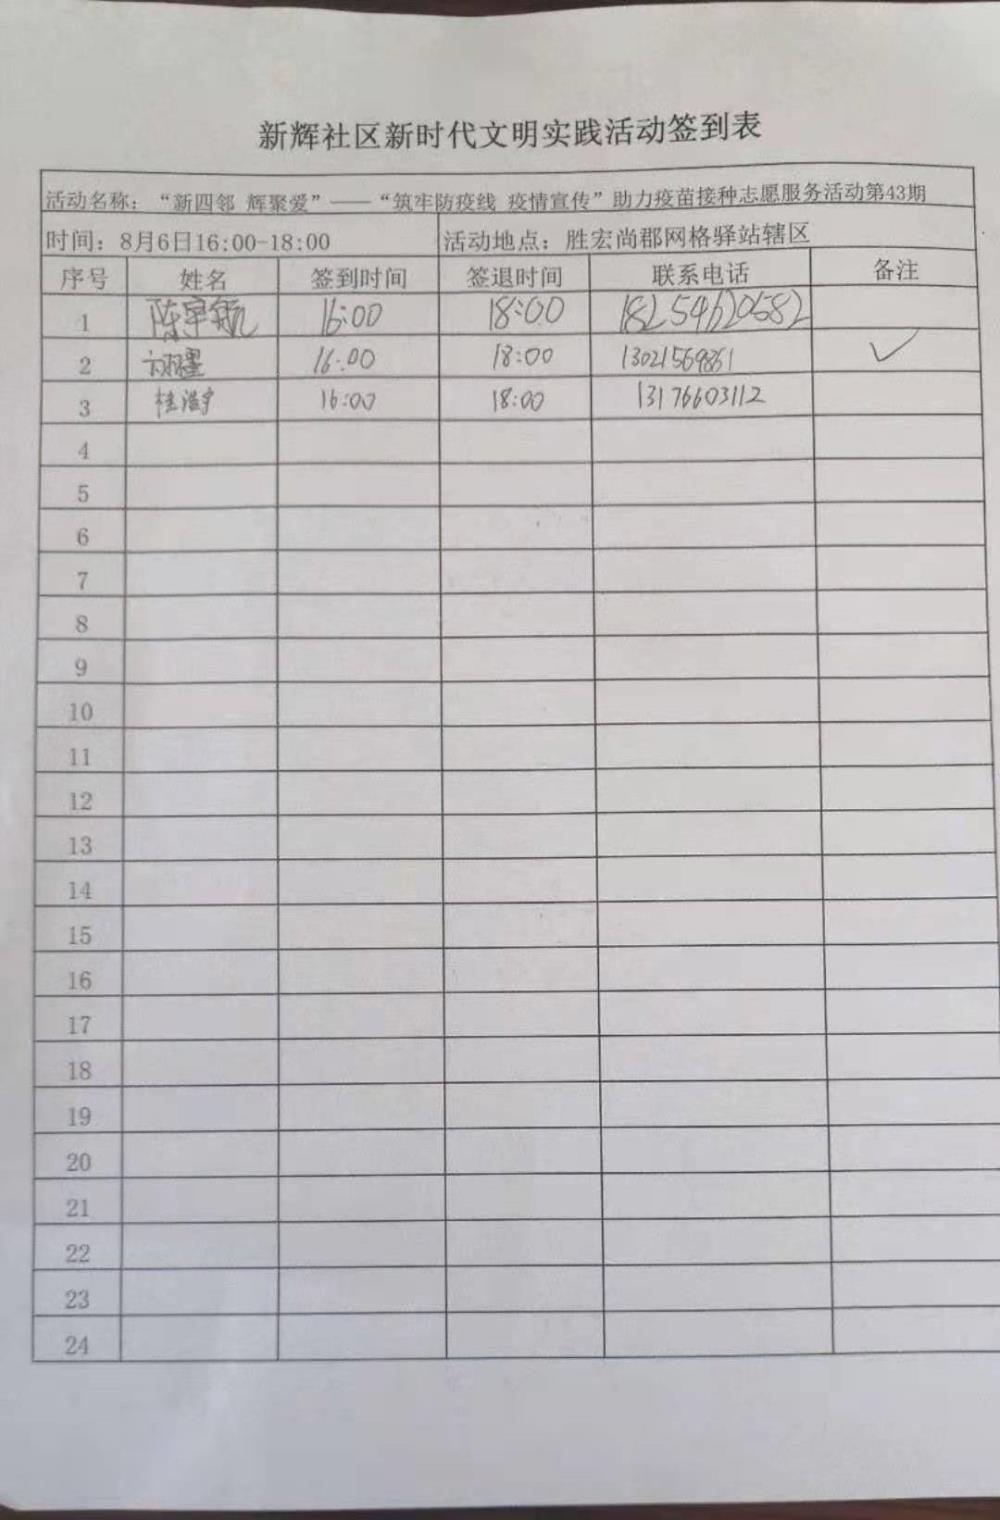 新辉社区新时代文明实践活动签到表
活动名称：“新四邻 辉聚爱”——“筑牢防疫线 疫情宣传”助力疫苗接种志愿服务活动第43期
时间：8月6日16:00-18:00 活动地点：胜宏尚郡网格驿站辖区
序号 姓名 签到时间 签退时间 联系电话 备注
1 陈宇航 16:00 18:00 18254620682
2 16:00 18:00 ✓
3 16:00 18:00 13176603112
4
5
6
7
8
9
10
11
12
13
14
15
16
17
18
19
20
21
22
23
24